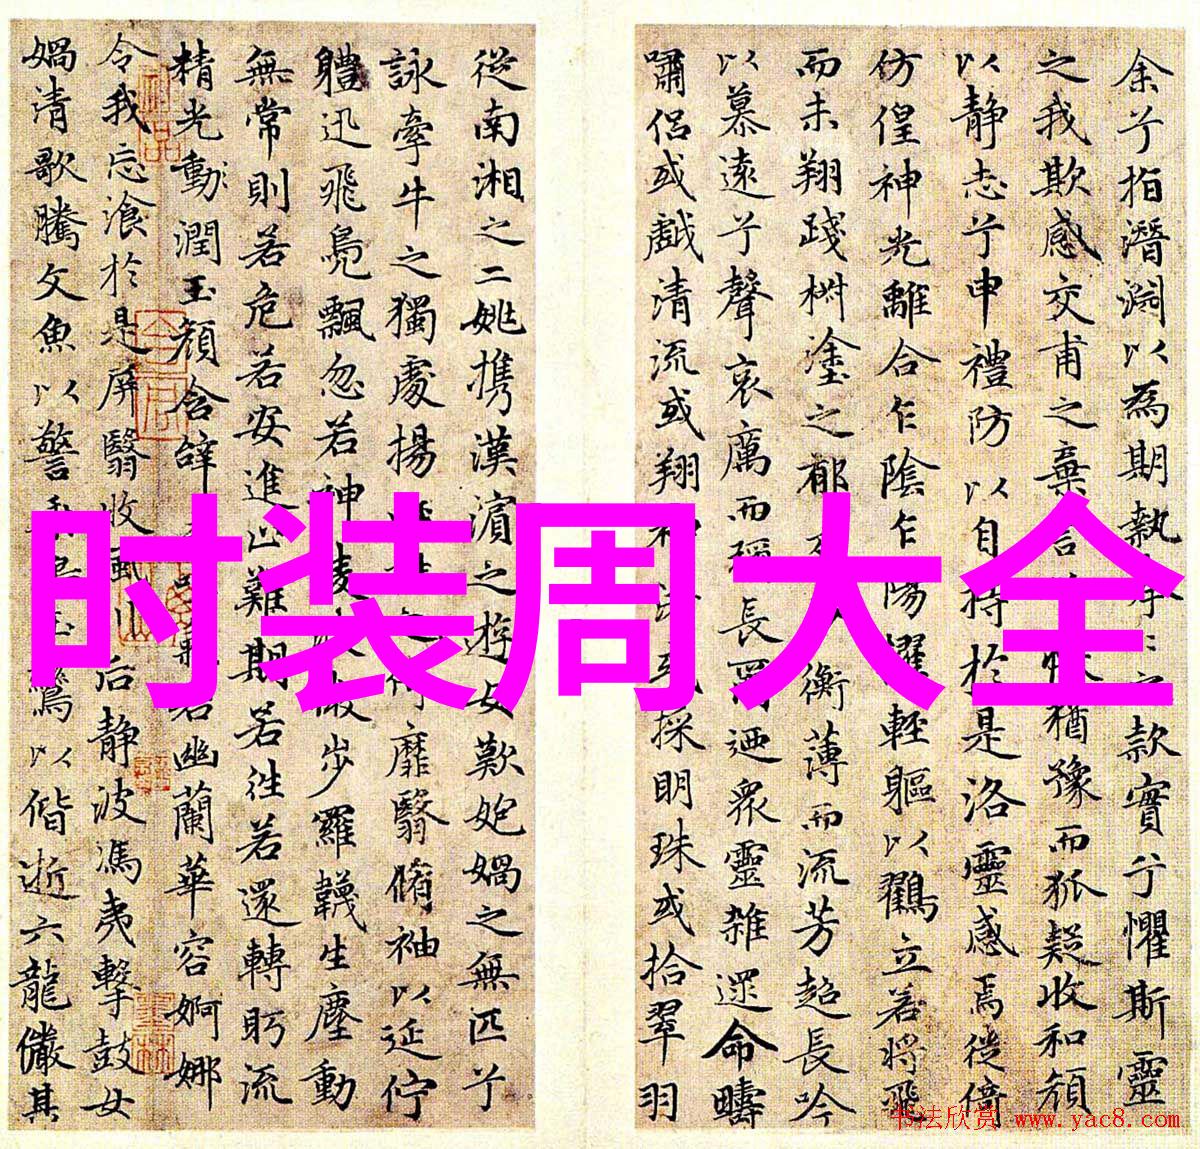 时装周大全
余兮指潛淵以為期執之款實兮懼斯靈
之我欺感交甫之棄言猶豫而狐疑收和顏
以静志兮申禮防以自持於是洛靈感焉徙倚
仿偟神光離合乍陰乍陽擢輕軀以鶴立若將飛
而未翔踐椒塗之郁衡薄而流芳超長吟
以慕遠兮聲哀厲而彌長爾迺衆靈雜遝命疇
嘯侣或戲清流或翔神渚或採明珠或拾翠羽
從南湘之二姚攜漢濱之遊女歎匏媧之無匹兮
詠牽牛之獨處揚之猗靡翳脩袖以延佇
體迅飛鳧飄忽若神陵波微步羅韈生塵動
無常則若危若安進止難期若往若還轉眄流
精光動潤玉顏含辭氣若幽蘭華容婀娜
令我忘飡於是屏翳收風川后静波馮夷擊鼓女
媧清歌騰文魚以警乘鳴玉鸞以偕逝六龍儼其
书法欣赏 www.yac8.com